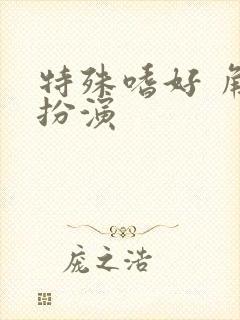 特殊嗜好 角
扮演
庞之浩